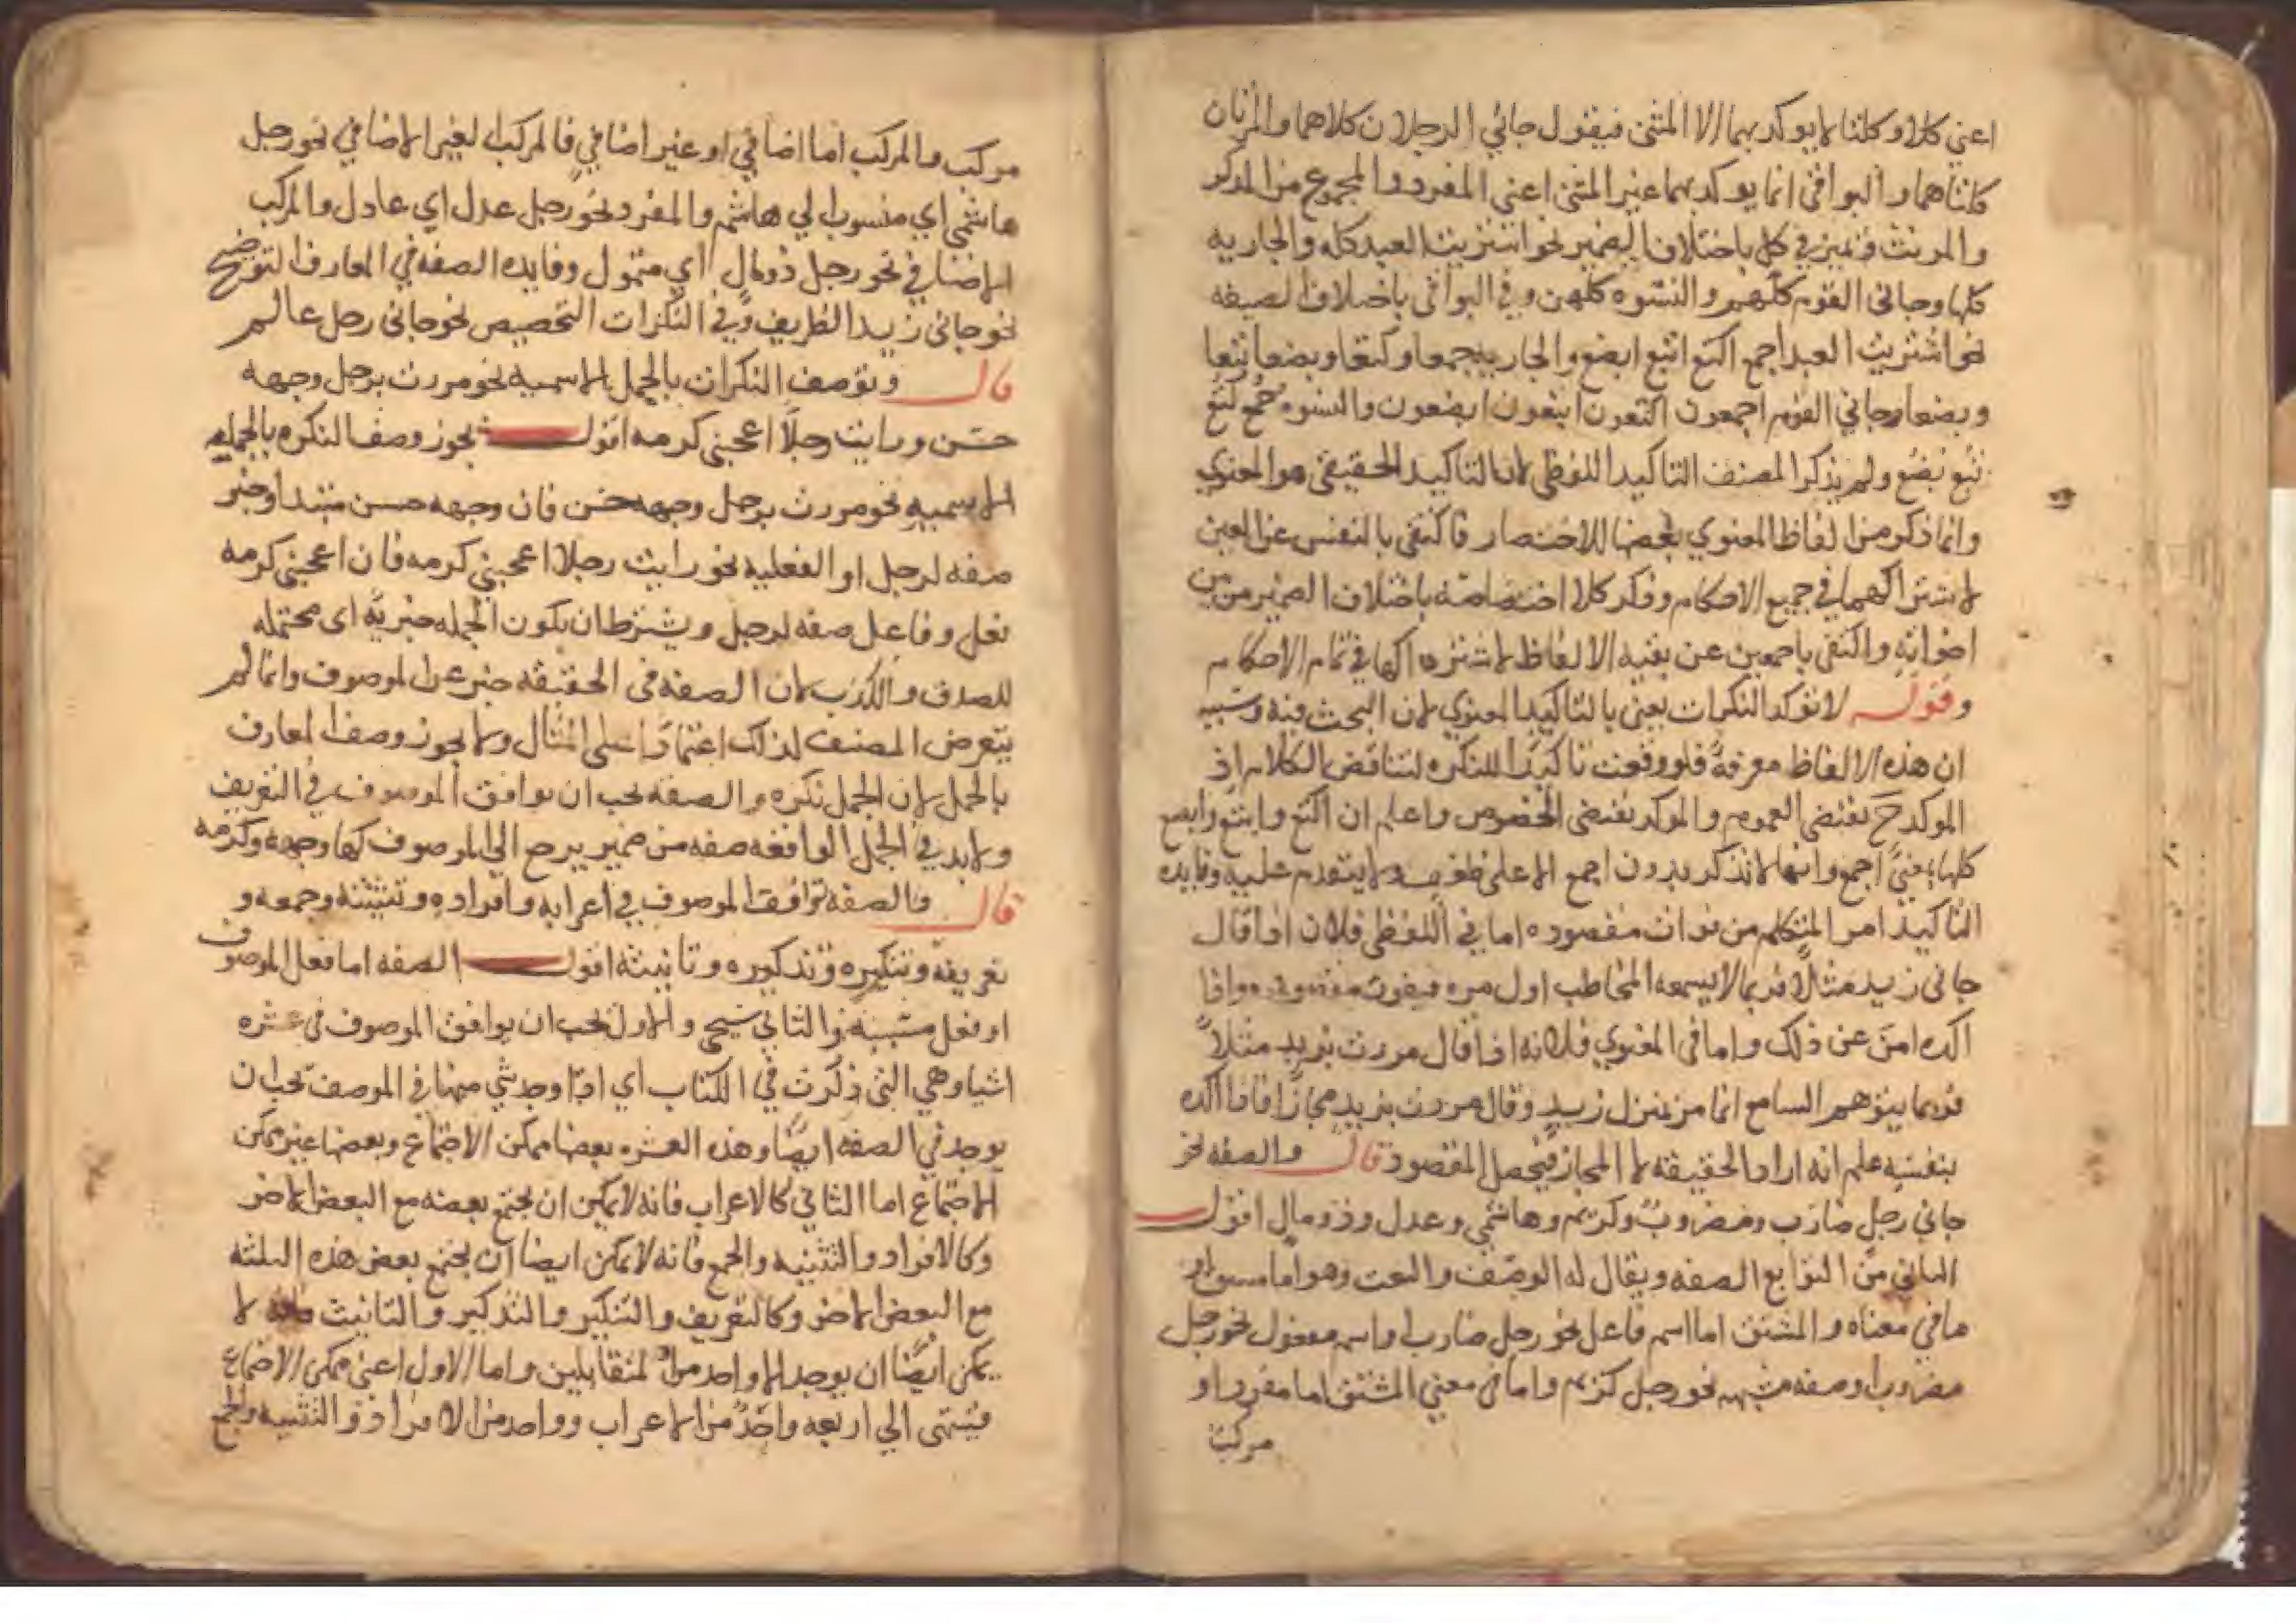 اعني كلا وكلتا لا يوكد بهما الا المثنى فيقول جائي الرجلان كلاهما والمراتان
كلتاهما والبواقي انما يوكد بهما غير المثنى اعني المفرد والمجموع من المذكر
والمونث وتميز في كل باختلاف الضمير نحو اشتريت العبد كله والجاريه
كلها وجاني القوم كلهم والنسوه كلهن وفي البواقي باختلاف الصيغه
نحو اشتريت العبد اجمع اكتع ابتع ابضع والجاريه جمعا وكتعا وبضعا بتعا
وبضعا وجاني القوم اجمعون اكتعون ابتعون ابضعون والنسوه جُمع كتع
بتع بضع ولم يذكر المصنف التاكيد اللفظي لان التاكيد الحقيقي هو المعنوي
وانما ذكر من الفاظ المعنوي بعضها للاختصار فاكتفى بالنفس عن العين
لاشتراكهما في جميع الاحكام وذكر كلا اختصاصه باختلاف الضمير من بين
اخواته واكتفى باجمعين عن بقيه الالفاظ لاشتراكها في تمام الاحكام
وقوله لا توكد النكرات يعني بالتاكيد المعنوي لان البحث فيه وسببه
ان هذه الالفاظ معرفة فلو وقعت تاكيدًا للنكره لتناقض الكلام اذ
الموكد ح يقتضي العموم والموكد يقتضي الخصوص واعلم ان اكتع وابتع وابضع
كلها بمعني اجمع وانها لا تذكر بدون اجمع الا على ضعف ولا يتقدم عليه وفايده
التاكيد امر المتكلم من فوات مقصوده اما في اللفظي فلان اذا قال
جاني زيد مثلًا فربما لا يسمعه المخاطب اول مره فيفوت مقصوده واذا
اكده امن عن ذلك واما في المعنوي فلانه اذا قال مررت بزيد مثلاً
فربما يتوهم السامع انما مر بمنزل زيد وقال مررت بزيد مجازًا فاذا اكده
بنفسه علم انه اراد الحقيقه لا المجاز فيحصل المقصود قال والصفه نحو
جاني رجل ضارب ومضروبٌ وكريم وهاشمي وعدل وذو مال اقول
الثاني من التوابع الصفه ويقال له الوصف والنعت وهو اما مشتق او
ما في معناه والمشتق اما اسم فاعل نحو رجل ضارب او اسم مفعول نحو رجل
مضروب او صفه مشبهه نحو رجل كريم واما في معني المشتق اما مفرد او
مركب
مركب والمركب اما اضافي او غير اضافي فالمركب الغير الاضافي نحو رجل
هاشمي اي منسوب الي هاشم والمفرد نحو رجل عدل اي عادل والمركب
الاضافي نحو رجل ذو مال اي متمول وفايده الصفه في المعارف التوضيح
نحو جاني زيد الظريف وفي النكرات التخصيص نحو جاني رجل عالم
قال وتوصف النكرات بالجمل الاسميه نحو مررت برجل وجهه
حسن ورايت رجلًا اعجبني كرمه اقول يجوز وصف النكره بالجمله
الاسميه نحو مررت برجل وجهه حسن فان وجهه حسن مبتدا وخبر
صفه لرجل او الفعليه نحو رايت رجلا اعجبني كرمه فان اعجبني كرمه
فعل وفاعل صفه لرجل ويشترط ان يكون الجمله خبريّه اى محتمله
للصدق والكذب لان الصفه فى الحقيقه خبر عن الموصوف وانما لم
يتعرض المصنف لذلك اعتمادًا على المثال ولا يجوز وصف المعارف
بالجمل لان الجمل نكره والصفه يجب ان يوافق الموصوف في التعريف
ولابد في الجمل الواقعه صفه من ضمير يرجع الي الموصوف كها وجهه وكرمه
قال والصفه توافق الموصوف في اعرابه وافراده وتثنيته وجمعه و
تعريفه وتنكيره وتذكيره وتانيثه اقول الصفه اما فعل الموصوف
او فعل مسببه والثاني سيجى والاول يجب ان يوافق الموصوف في عشره
اشيا وهي التى ذكرت في الكتاب اي اذا وجد شي منها في الموصف يجب ان
يوجد في الصفه ايضًا وهذه العشره بعضها ممكن الاجتماع وبعضها غير ممكن
الاجتماع اما الثاني كالاعراب فانه لا يمكن ان يجتمع بعضه مع البعض الاخر
وكالافراد والتثنيه والجمع فانه لا يمكن ايضا ان يجتمع بعض هذه الثلثه
مع البعض الاخر وكالتعريف والتنكير والتذكير والتانيث فانه لا
يمكن ايضًا ان يوجد الا واحد من المتقابلين واما الاول اعني ممكن الاجتماع
فينتهى الي اربعه واحدٌ من الاعراب وواحد من الافراد والتثنيه والجمع